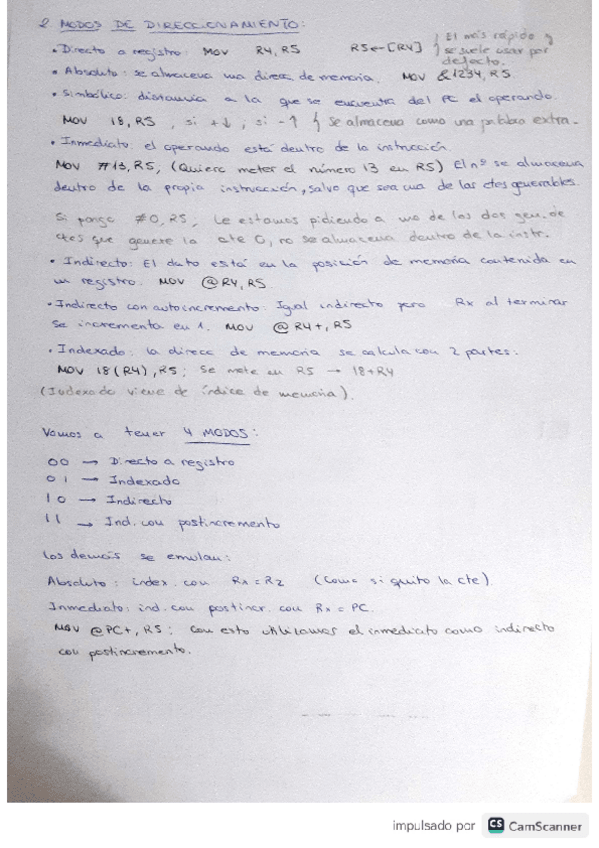 2 MODOS DE DIRECCIONAMIENTO:
• Directo a registro: MOV R4, R5 R5 ← [R4] } El más rápido y
se suele usar por
defecto.
• Absoluto: se almacena una direcc. de memoria. MOV &1234, R5.
• Simbólico: distancia a la que se encuentra del PC el operando.
MOV 18, R5 , si + ↓ , si - ↑ } Se almacena como una palabra extra.
• Inmediato: el operando está dentro de la instrucción.
MOV #13, R5, (Quiere meter el número 13 en R5) El nº se almacena
dentro de la propia instrucción, salvo que sea una de las ctes generables.
Si pongo #0, R5, Le estamos pidiendo a uno de los dos gen. de
ctes que genere la cte 0, no se almacena dentro de la instr.
• Indirecto: El dato está en la posición de memoria contenida en
un registro. MOV @R4, R5
• Indirecto con autoincremento: Igual indirecto pero Rx al terminar
se incrementa en 1. MOV @R4+, R5
• Indexado: la direcc de memoria se calcula con 2 partes:
MOV 18(R4), R5; Se mete en R5 → 18+R4
(Indexado viene de índice de memoria).
Vamos a tener 4 MODOS:
00 → Directo a registro
01 → Indexado
10 → Indirecto
11 → Ind. con postincremento
Los demás se emulan:
Absoluto: index. con Rx = R2 (Como si quito la cte).
Inmediato: ind. con postincr. con Rx = PC.
MOV @PC+, R5; Con esto utilizamos el inmediato como indirecto
con postincremento.
impulsado por CS CamScanner